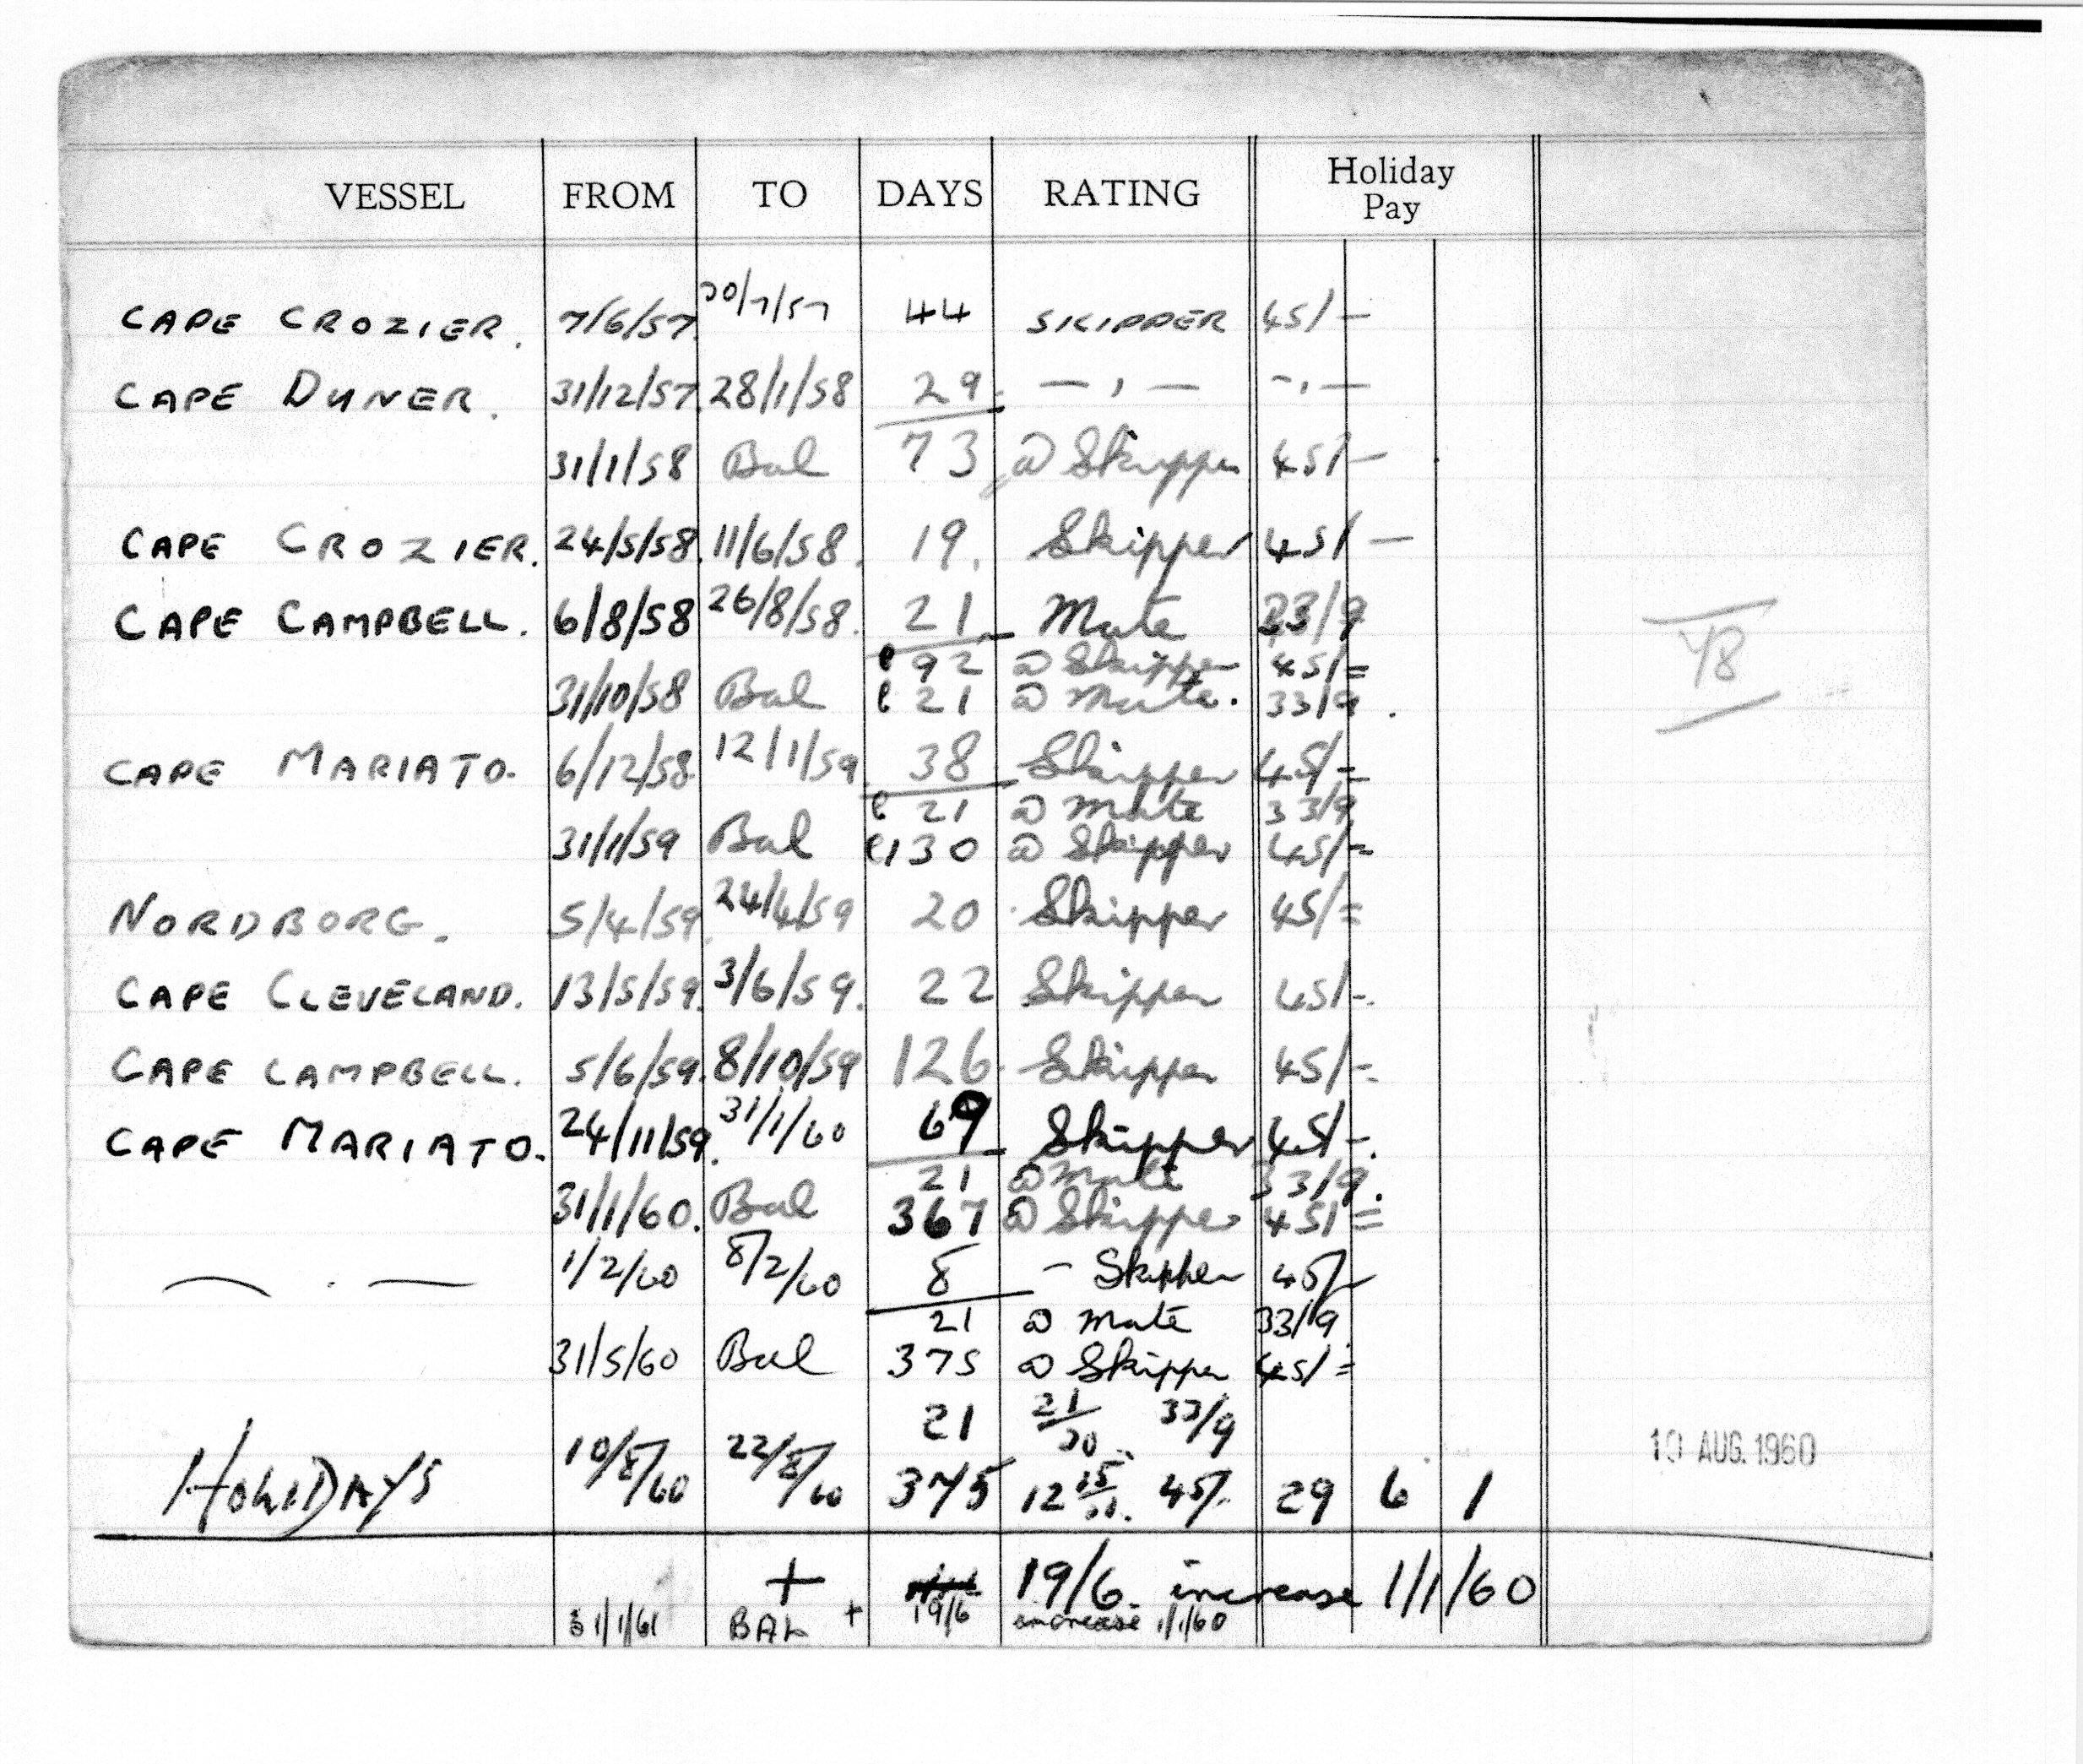 VESSEL FROM TO DAYS RATING Holiday Pay
CAPE CROZIER. 7/6/57. 20/7/57 44 SKIPPER 45/-
CAPE DUNER. 31/12/57. 28/1/58 29. — , — - , —
31/1/58 Bal 73 @ Skipper 45/-
CAPE CROZIER. 24/5/58. 11/6/58. 19. Skipper 45/-
CAPE CAMPBELL. 6/8/58 26/8/58. 21 Mate 33/9
92 @ Skipper 45/=
31/10/58 Bal 21 @ Mate. 33/9.
48
CAPE MARIATO. 6/12/58. 12/1/59. 38 Skipper 45/=
21 @ Mate 33/9
31/1/59 Bal 130 @ Skipper 45/=
NORDBORG. 5/4/59. 24/4/59 20 Skipper 45/=
CAPE CLEVELAND. 13/5/59. 3/6/59. 22 Skipper 45/-.
CAPE CAMPBELL. 5/6/59. 8/10/59 126. Skipper 45/-.
CAPE MARIATO. 24/11/59. 31/1/60 69 Skipper 45/-.
21 @ Mate 33/9.
31/1/60. Bal 367 @ Skipper 45/=
— . — 1/2/60 8/2/60 8 - Skipper 45/-
21 @ Mate 33/9
31/5/60 Bal 375 @ Skipper 45/=
21 21/30 33/9
HOLIDAYS 10/8/60 22/8/60 375 12 15/30. 45/. 29 6 1
10 AUG. 1960
+ 19/6 increase 1/1/60
31/1/61 BAL + 19/6 increase 1/1/60